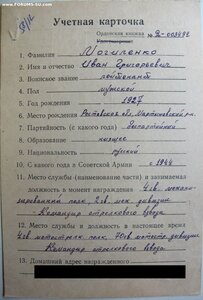 www.FORUMS-SU.com
Учетная карточка
Орденская книжка
1. Фамилия Могиленко
2. Имя и отчество Иван Григорьевич
3. Воинское звание лейтенант
4. Пол мужской
5. Год рождения 1927
6. Место рождения Ростовская
7. Партийность (с какого года) беспартийный
8. Образование низшее
9. Национальность русский
10. С какого года в Советской Армии с 1944
11. Место службы (наименование части) и занимаемая
должность в момент награждения 4 гв. механи-
зированный полк, 2 гв. мех. дивизии
Командир стрелкового взвода
12. Место службы и должность в настоящее время
дивизии
Командир стрелкового взвода
13. Домашний адрес награжденного